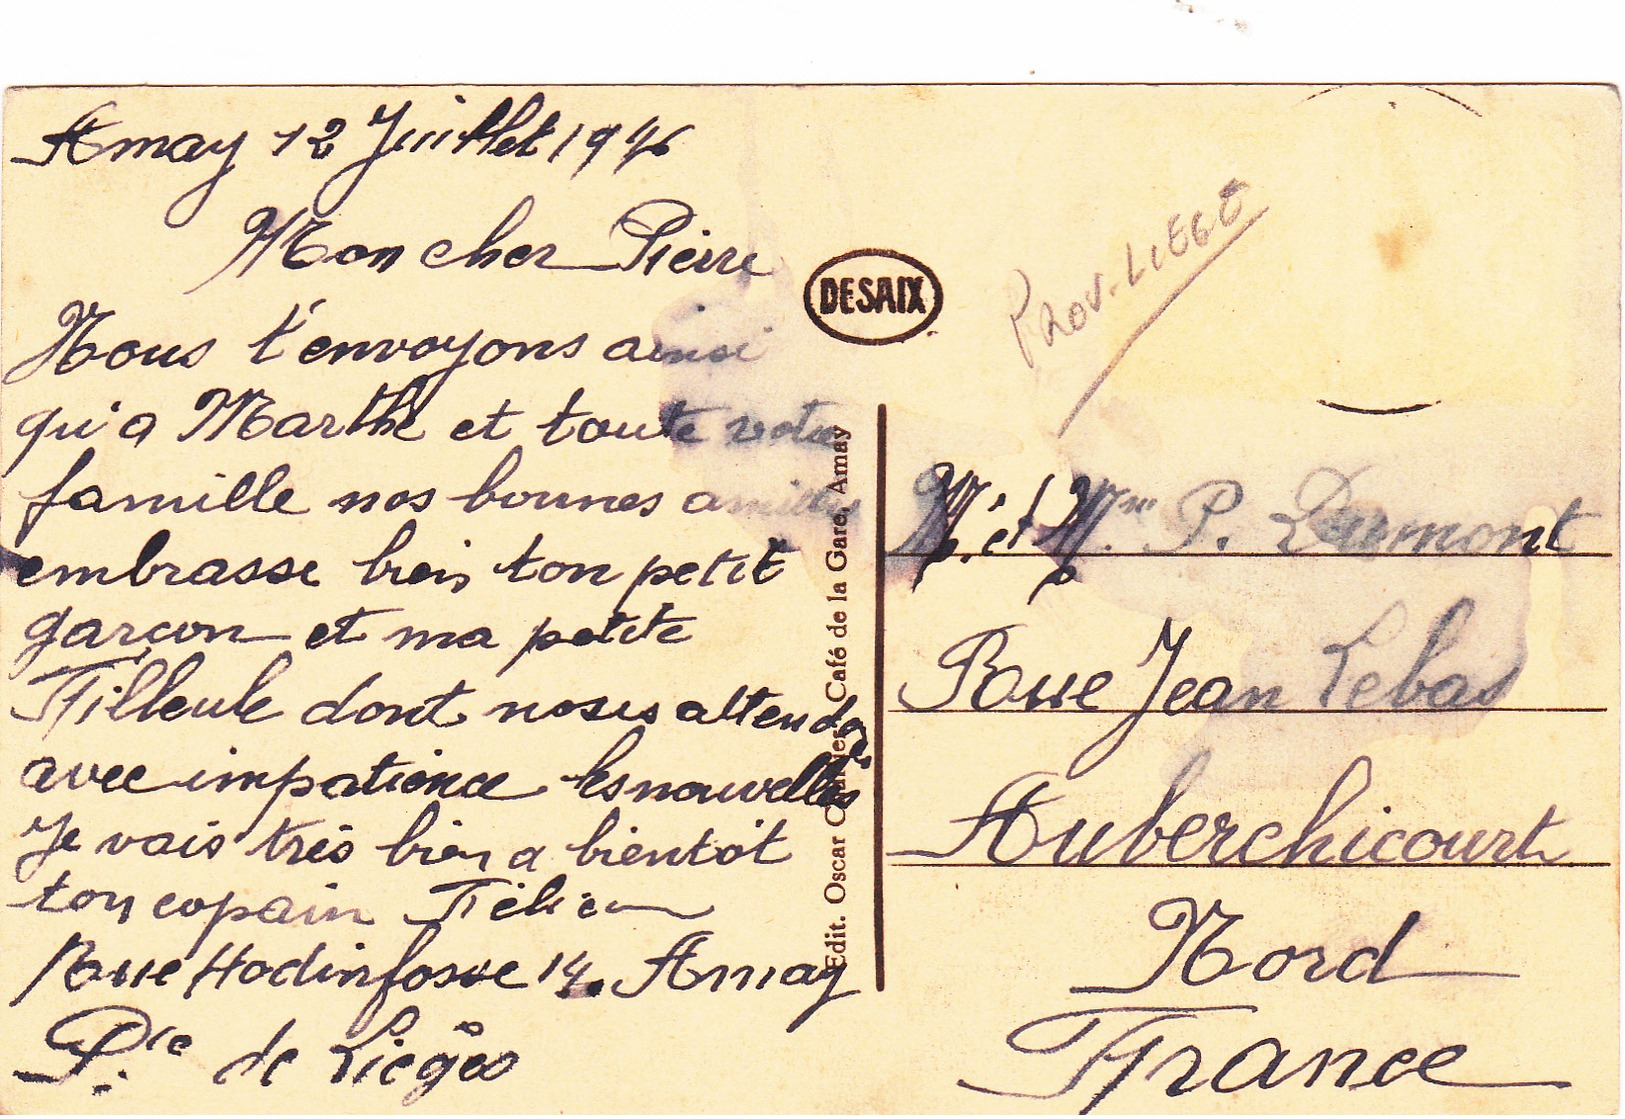 Amay 12 Juillet 1946
Mon cher Pierre
Nous t'envoyons ainsi
qu'a Marthe et toute votre
famille nos bonnes amitiés
embrasse bien ton petit
garçon et ma petite
Filleule dont nous attendons
avec impatience les nouvelles
Je vais très bien a bientôt
ton copain Félicien
Rue Hodinfosse 14. Amay
P.ce de Lièges
DESAIX
Edit. Oscar Café de la Gare, Amay
PROV. LIEGE
Mr. et Mme P. Dumont
Rue Jean Lebas
Auberchicourt
Nord
France